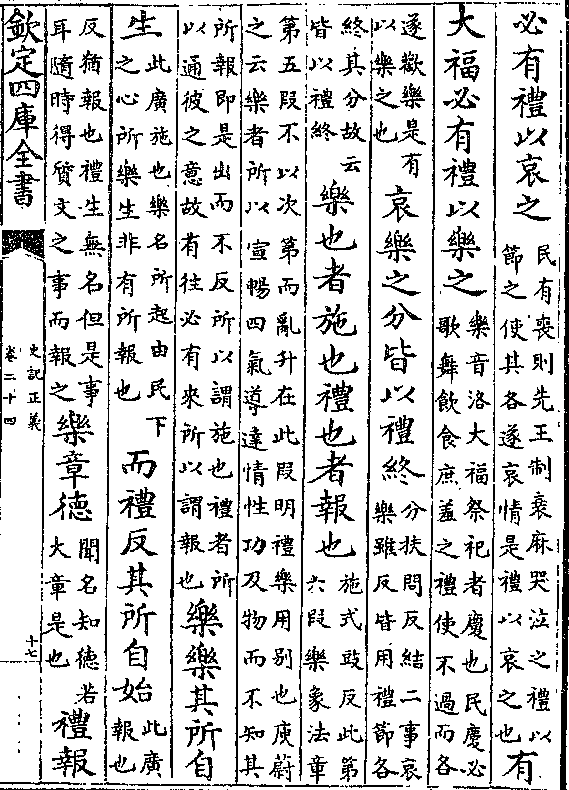 必有禮以哀之
民有喪則先王制衰麻哭泣之禮以
節之使其各遂哀情是禮以哀之也
有
大福必有禮以樂之
樂音洛大福祭祀者慶也民慶必
歌舞飲食庶羞之禮使不過而各
遂歡樂是有
以樂之也
哀樂之分皆以禮終
分扶問反結二事哀
樂雖反皆用禮節各
終其分故云
皆以禮終
樂也者施也禮也者報也
施式豉反此第
六段樂象法章
第五段不以次第而亂升在此段明禮樂用別也庾蔚
之云樂者所以宣暢四氣導達情性功及物而不知其
所報即是出而不反所以謂施也禮者所
以通彼之意故有往必有來所以謂報也
樂樂其所自
生
此廣施也樂名所起由民下
之心所樂生非有所報也
而禮反其所自始
此廣
報也
反猶報也禮生無名但是事
耳隨時得質文之事而報之
樂章德
聞名知德若
大章是也
禮報
欽定四庫全書
史記正義
卷二十四
十七